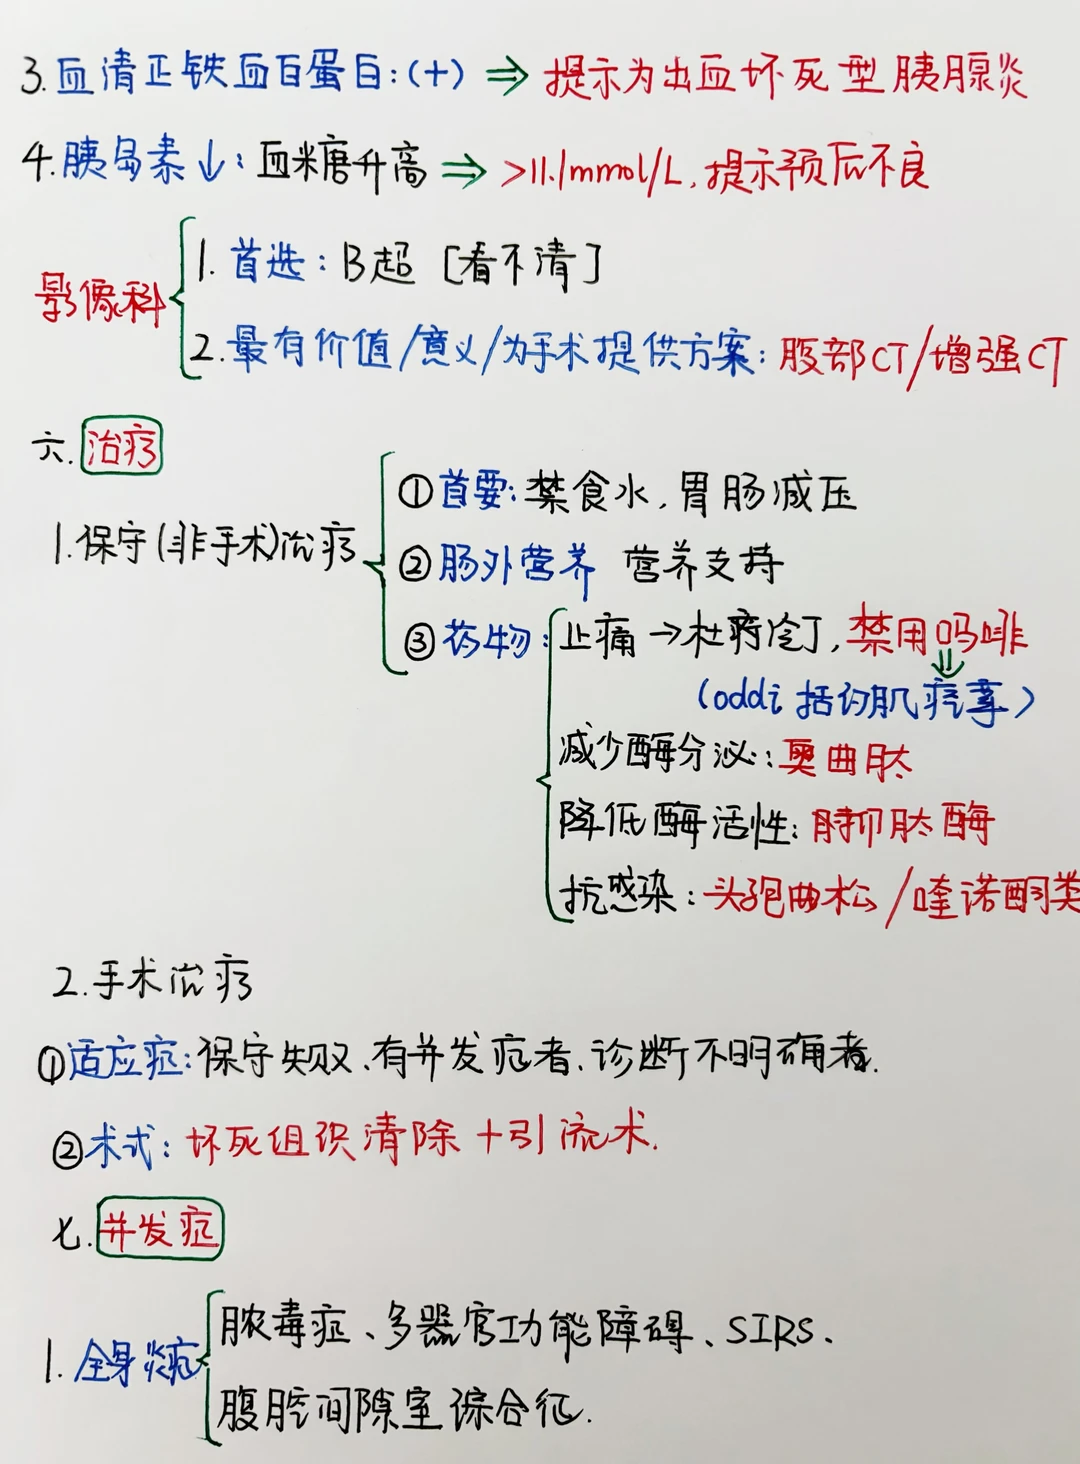 3.血清正铁血白蛋白:(+)⇒提示为出血坏死型胰腺炎
4.胰岛素↓:血糖升高⇒>11.1mmol/L,提示预后不良
影像科
1.首选:B超[看不清]
2.最有价值/意义/为手术提供方案:腹部CT/增强CT
六.治疗
1.保守(非手术)治疗
①首要:禁食水,胃肠减压
②肠外营养 营养支持
③药物:止痛→杜冷丁,禁用吗啡
⇓
(oddi括约肌痉挛)
减少酶分泌:奥曲肽
降低酶活性:抑肽酶
抗感染:头孢曲松/喹诺酮类
2.手术治疗
①适应症:保守失败、有并发症者、诊断不明确者.
②术式:坏死组织清除+引流术.
七.并发症
1.全身炎症
脓毒症、多器官功能障碍、SIRS、
腹腔间隙室综合征.